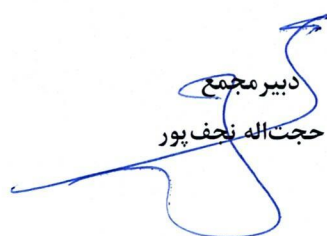 دبیر مجمع
حجت‌اله نجف‌پور